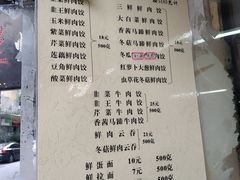 韭菜鲜肉饺
三鲜鲜肉饺
玉米鲜肉饺
大白菜鲜肉饺
紫菜鲜肉饺
18元
500克
香茜马蹄鲜肉饺
芹菜鲜肉饺
冬菇马蹄鲜肉饺
18元
500克
莲藕鲜肉饺
冬瓜
鲜肉饺
豆角鲜肉饺
红萝卜大葱鲜肉饺
酸菜鲜肉饺
虫草花冬菇鲜肉饺
韭菜牛肉饺
韭王牛肉饺
芹菜牛肉饺
香茜马蹄牛肉饺
500克
鲜肉云吞
冬菇鲜肉云吞
500克
鲜蛋面 10元 500克
鲜拉面 7元 500克